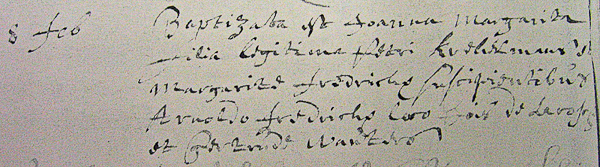 8 feb Baptizata est Joanna Margarita
filia legitima Petri
Margaritæ Fredrichs suscipientibus
Arnoldo Fredrichs loco
et Gertrude Wauters